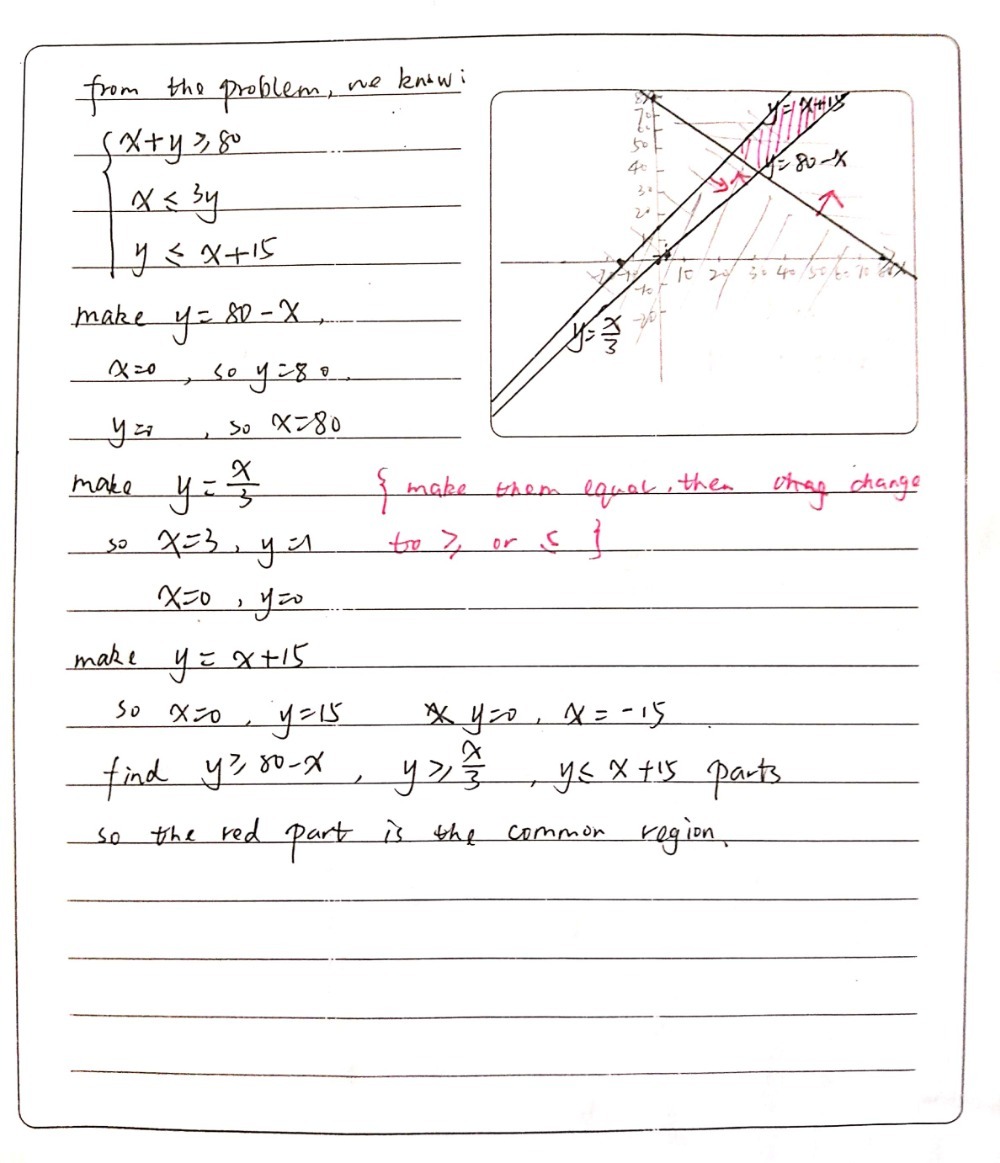 from the problem, we know:
x+y ≥ 80
x ≤ 3y
y ≤ x+15
make y = 80 - x,
x=0, so y=80.
y=0, so x=80
make y = x/3
{ make them equal, then change
so x=3, y=1 to ≥ or ≤ }
x=0, y=0
make y = x+15
so x=0, y=15 y=0, x=-15
find y ≥ 80-x, y ≥ x/3, y ≤ x+15 parts
so the red part is the common region.
y=x+15
y=80-x
y=x/3
80
70
50
40
30
20
-10
-20
-20 -10 10 20 30 40 50 60 70 80 x